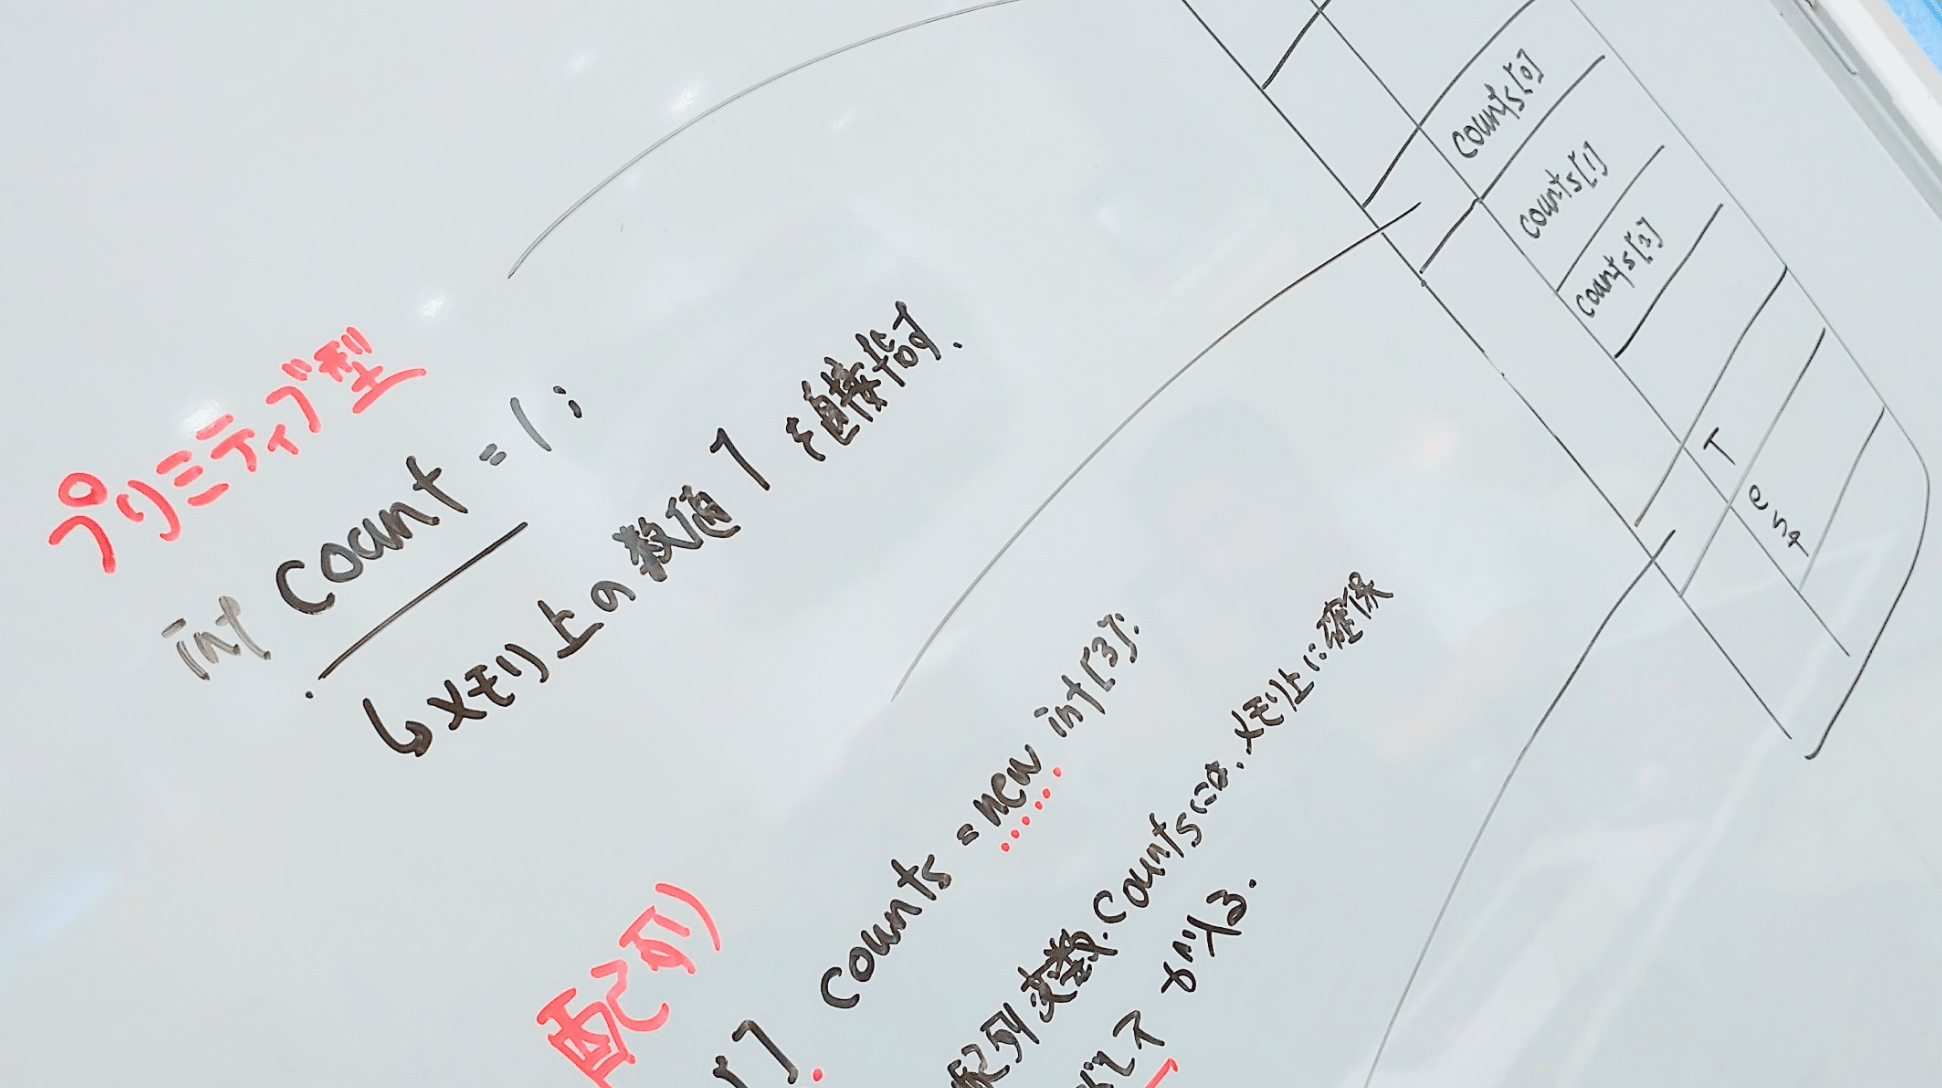 プリミティブ型
int count = 1;
↳メモリ上の数値1を直接指す.
配列
[] counts = new int[3];
配列変数. countsには. メモリ上に確保
が入る.
counts[0]
counts[1]
counts[2]
T
e
s
t